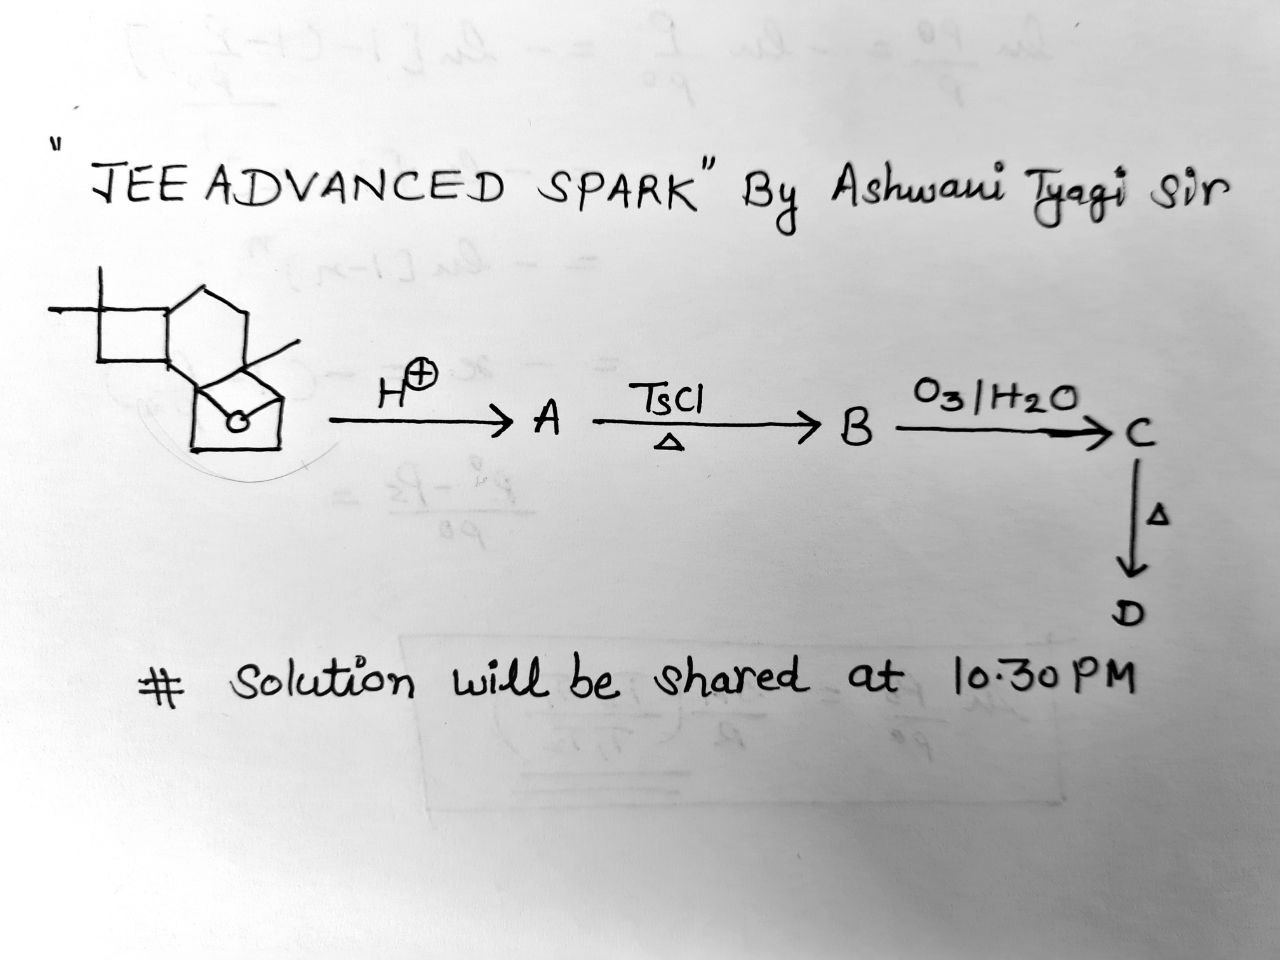 "JEE ADVANCED SPARK" By Ashwani Tyagi Sir
H⊕ A TsCl Δ B O3/H2O C
O
Δ
D
# Solution will be shared at 10.30 PM